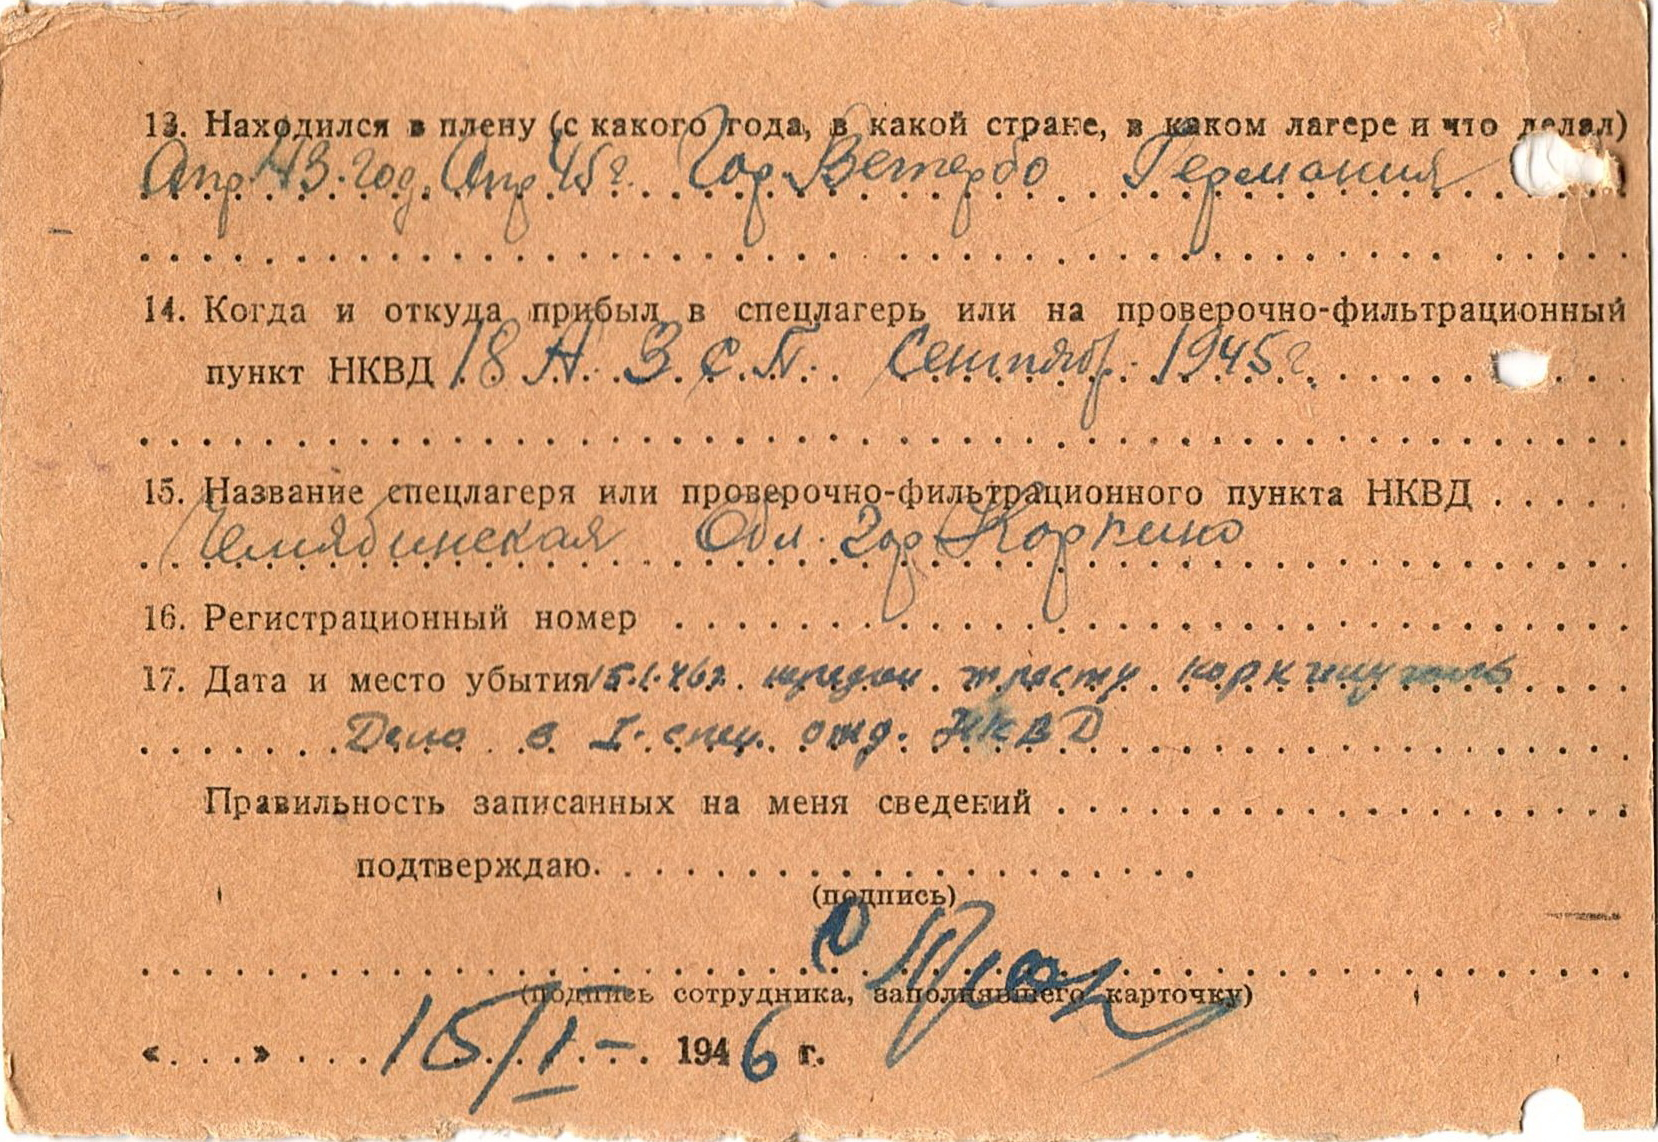 13. Находился в плену (с какого года, в какой стране, в каком лагере и что делал)
Апр 43. год. Апр 45 г. Гор. Ветербо Германия
14. Когда и откуда прибыл в спецлагерь или на проверочно-фильтрационный
пункт НКВД 18 А. З. С. П. Сентябр. 1945 г.
15. Название спецлагеря или проверочно-фильтрационного пункта НКВД
Челябинская Обл. гор Коркино
16. Регистрационный номер
17. Дата и место убытия 15.1.46г. передан тресту коркинуголь
Дело в I. спец. отд. НКВД
Правильность записанных на меня сведений
подтверждаю.
(подпись)
(подпись сотрудника, заполнявшего карточку)
«...» 15/I- 1946 г.